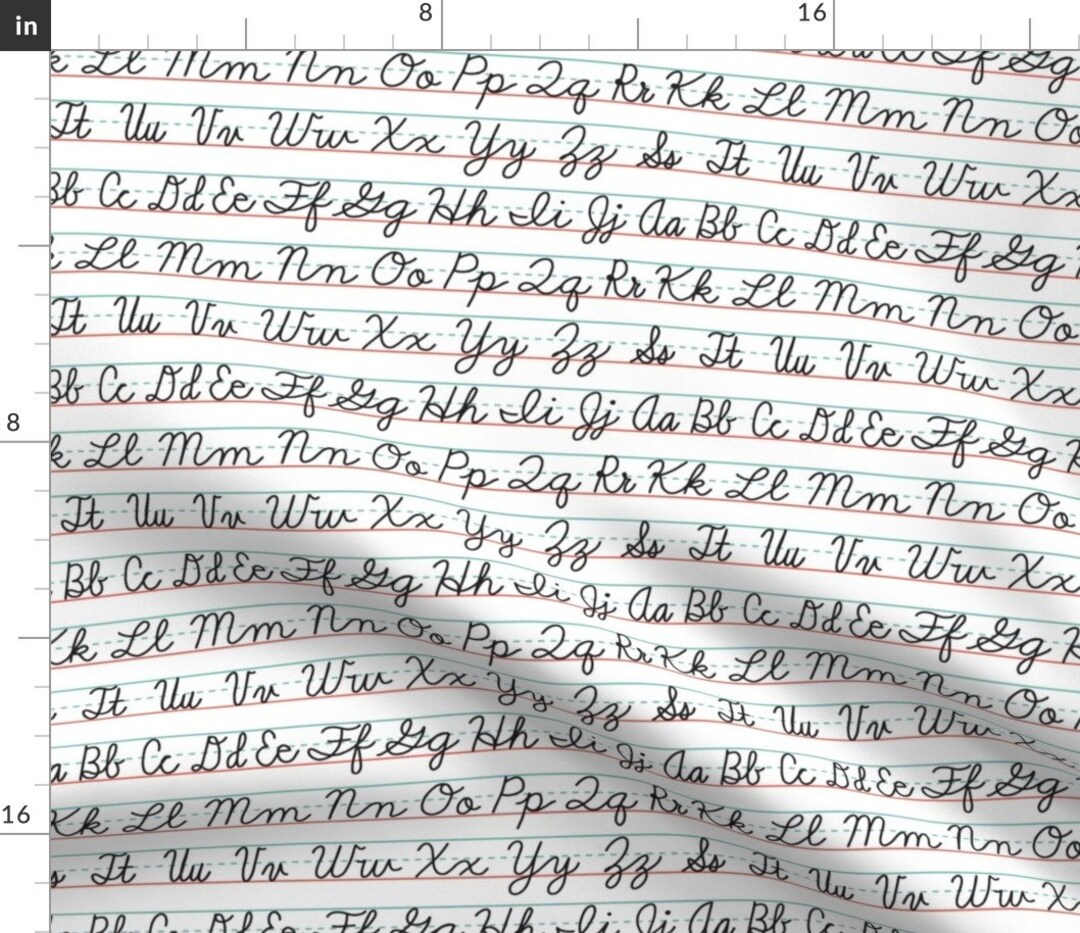 in 8 16
Ll Mm Nn Oo Pp Qq Rr Kk Ll Mm Nn Oo
Tt Uu Vv Ww Xx Yy Zz Ss Tt Uu Vv Ww Xx
Bb Cc Dd Ee Ff Gg Hh Ii Jj Aa Bb Cc Dd Ee Ff Gg
Ll Mm Nn Oo Pp Qq Rr Kk Ll Mm Nn Oo
Tt Uu Vv Ww Xx Yy Zz Ss Tt Uu Vv Ww Xx
8
Bb Cc Dd Ee Ff Gg Hh Ii Jj Aa Bb Cc Dd Ee Ff Gg
k Ll Mm Nn Oo Pp Qq Rr Kk Ll Mm Nn Oo
Tt Uu Vv Ww Xx Yy Zz Ss Tt Uu Vv Ww Xx
Bb Cc Dd Ee Ff Gg Hh Ii Jj Aa Bb Cc Dd Ee Ff Gg
Kk Ll Mm Nn Oo Pp Qq Rr Kk Ll Mm Nn Oo
Tt Uu Vv Ww Xx Yy Zz Ss Tt Uu Vv Ww
a Bb Cc Dd Ee Ff Gg Hh Ii Jj Aa Bb Cc Dd Ee Ff Gg
16
Kk Ll Mm Nn Oo Pp Qq Rr Kk Ll Mm Nn Oo
s Tt Uu Vv Ww Xx Yy Zz Ss Tt Uu Vv Ww X
Bb Cc Dd Ee Ff Gg Hh Ii Jj Aa Bb Cc